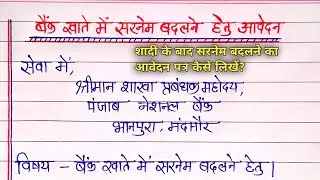 बैंक खाते में सरनेम बदलने हेतु आवेदन
शादी के बाद सरनेम बदलने का
आवेदन पत्र कैसे लिखें?
सेवा में,
श्रीमान शाखा प्रबंधक महोदय,
पंजाब नेशनल बैंक
भानपुरा, मंदसौर
विषय - बैंक खाते में सरनेम बदलने हेतु।